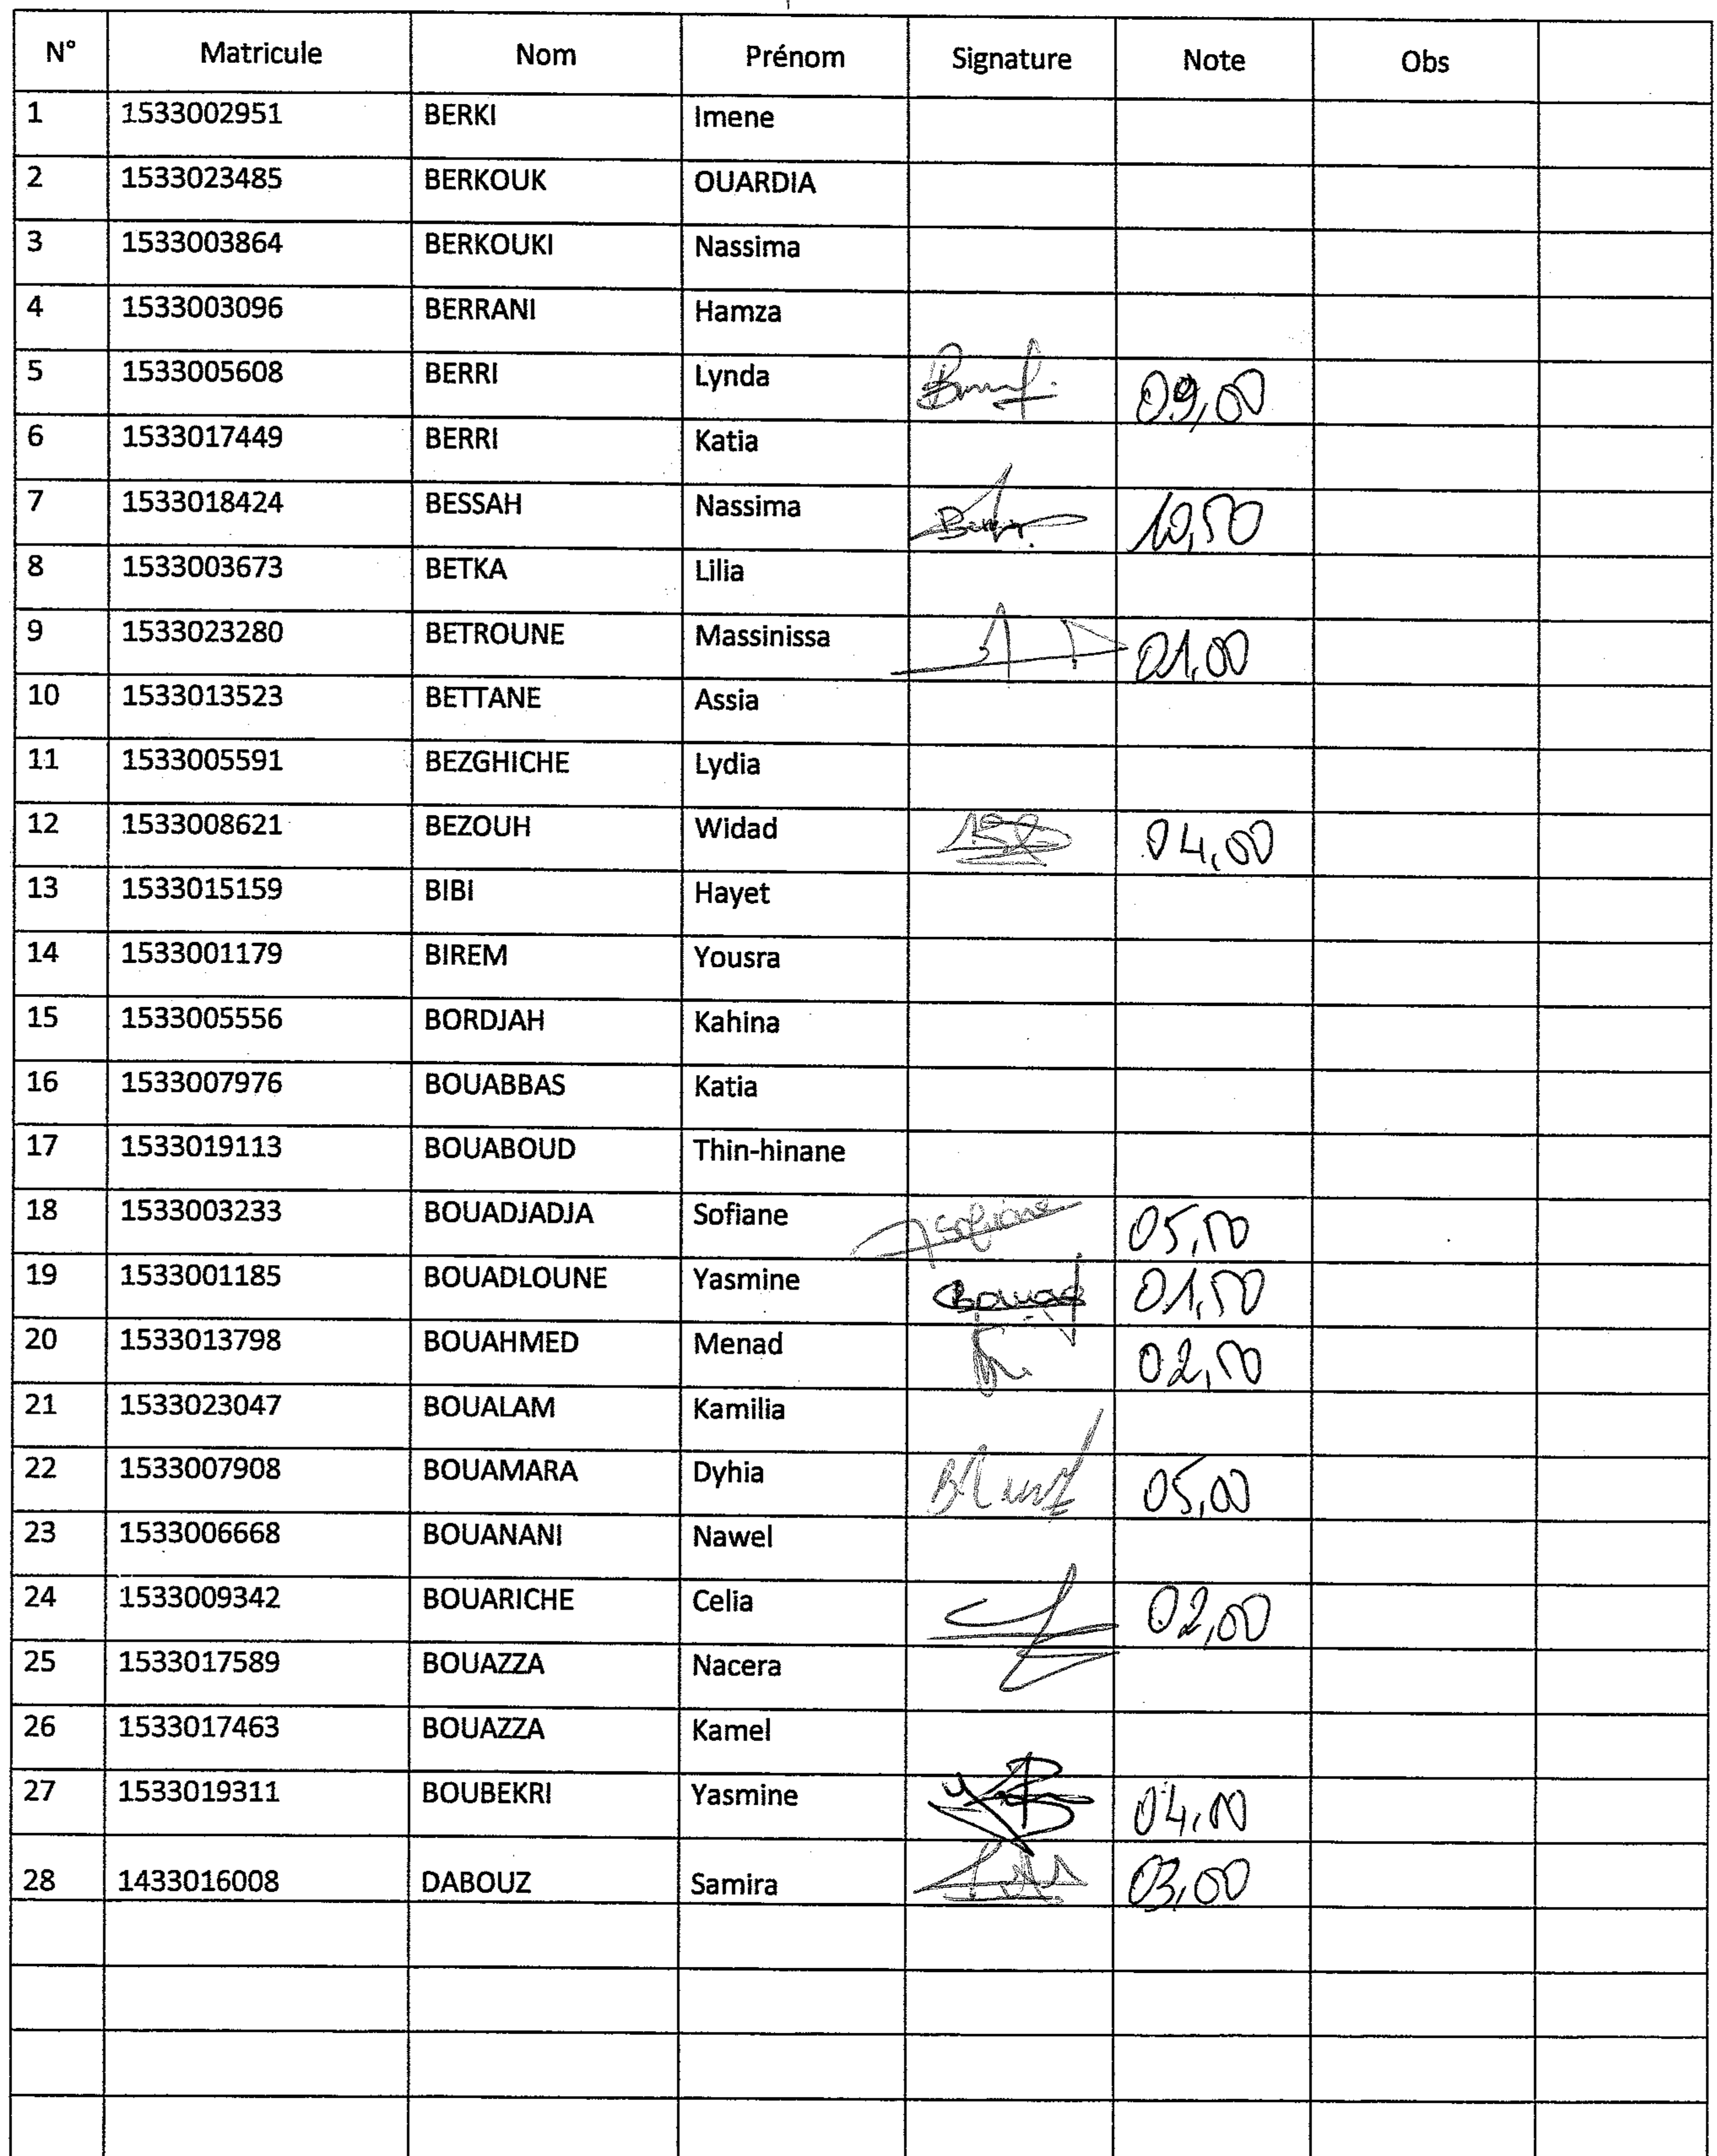 N° Matricule Nom Prénom Signature Note Obs
1 1533002951 BERKI Imene
2 1533023485 BERKOUK OUARDIA
3 1533003864 BERKOUKI Nassima
4 1533003096 BERRANI Hamza
5 1533005608 BERRI Lynda 09,00
6 1533017449 BERRI Katia
7 1533018424 BESSAH Nassima 10,50
8 1533003673 BETKA Lilia
9 1533023280 BETROUNE Massinissa 01,00
10 1533013523 BETTANE Assia
11 1533005591 BEZGHICHE Lydia
12 1533008621 BEZOUH Widad 04,00
13 1533015159 BIBI Hayet
14 1533001179 BIREM Yousra
15 1533005556 BORDJAH Kahina
16 1533007976 BOUABBAS Katia
17 1533019113 BOUABOUD Thin-hinane
18 1533003233 BOUADJADJA Sofiane Sofiane
19 1533001185 BOUADLOUNE Yasmine
20 1533013798 BOUAHMED Menad
21 1533023047 BOUALAM Kamilia
22 1533007908 BOUAMARA Dyhia 05,00
23 1533006668 BOUANANI Nawel
24 1533009342 BOUARICHE Celia 02,00
25 1533017589 BOUAZZA Nacera
26 1533017463 BOUAZZA Kamel
27 1533019311 BOUBEKRI Yasmine 04,00
28 1433016008 DABOUZ Samira 03,00